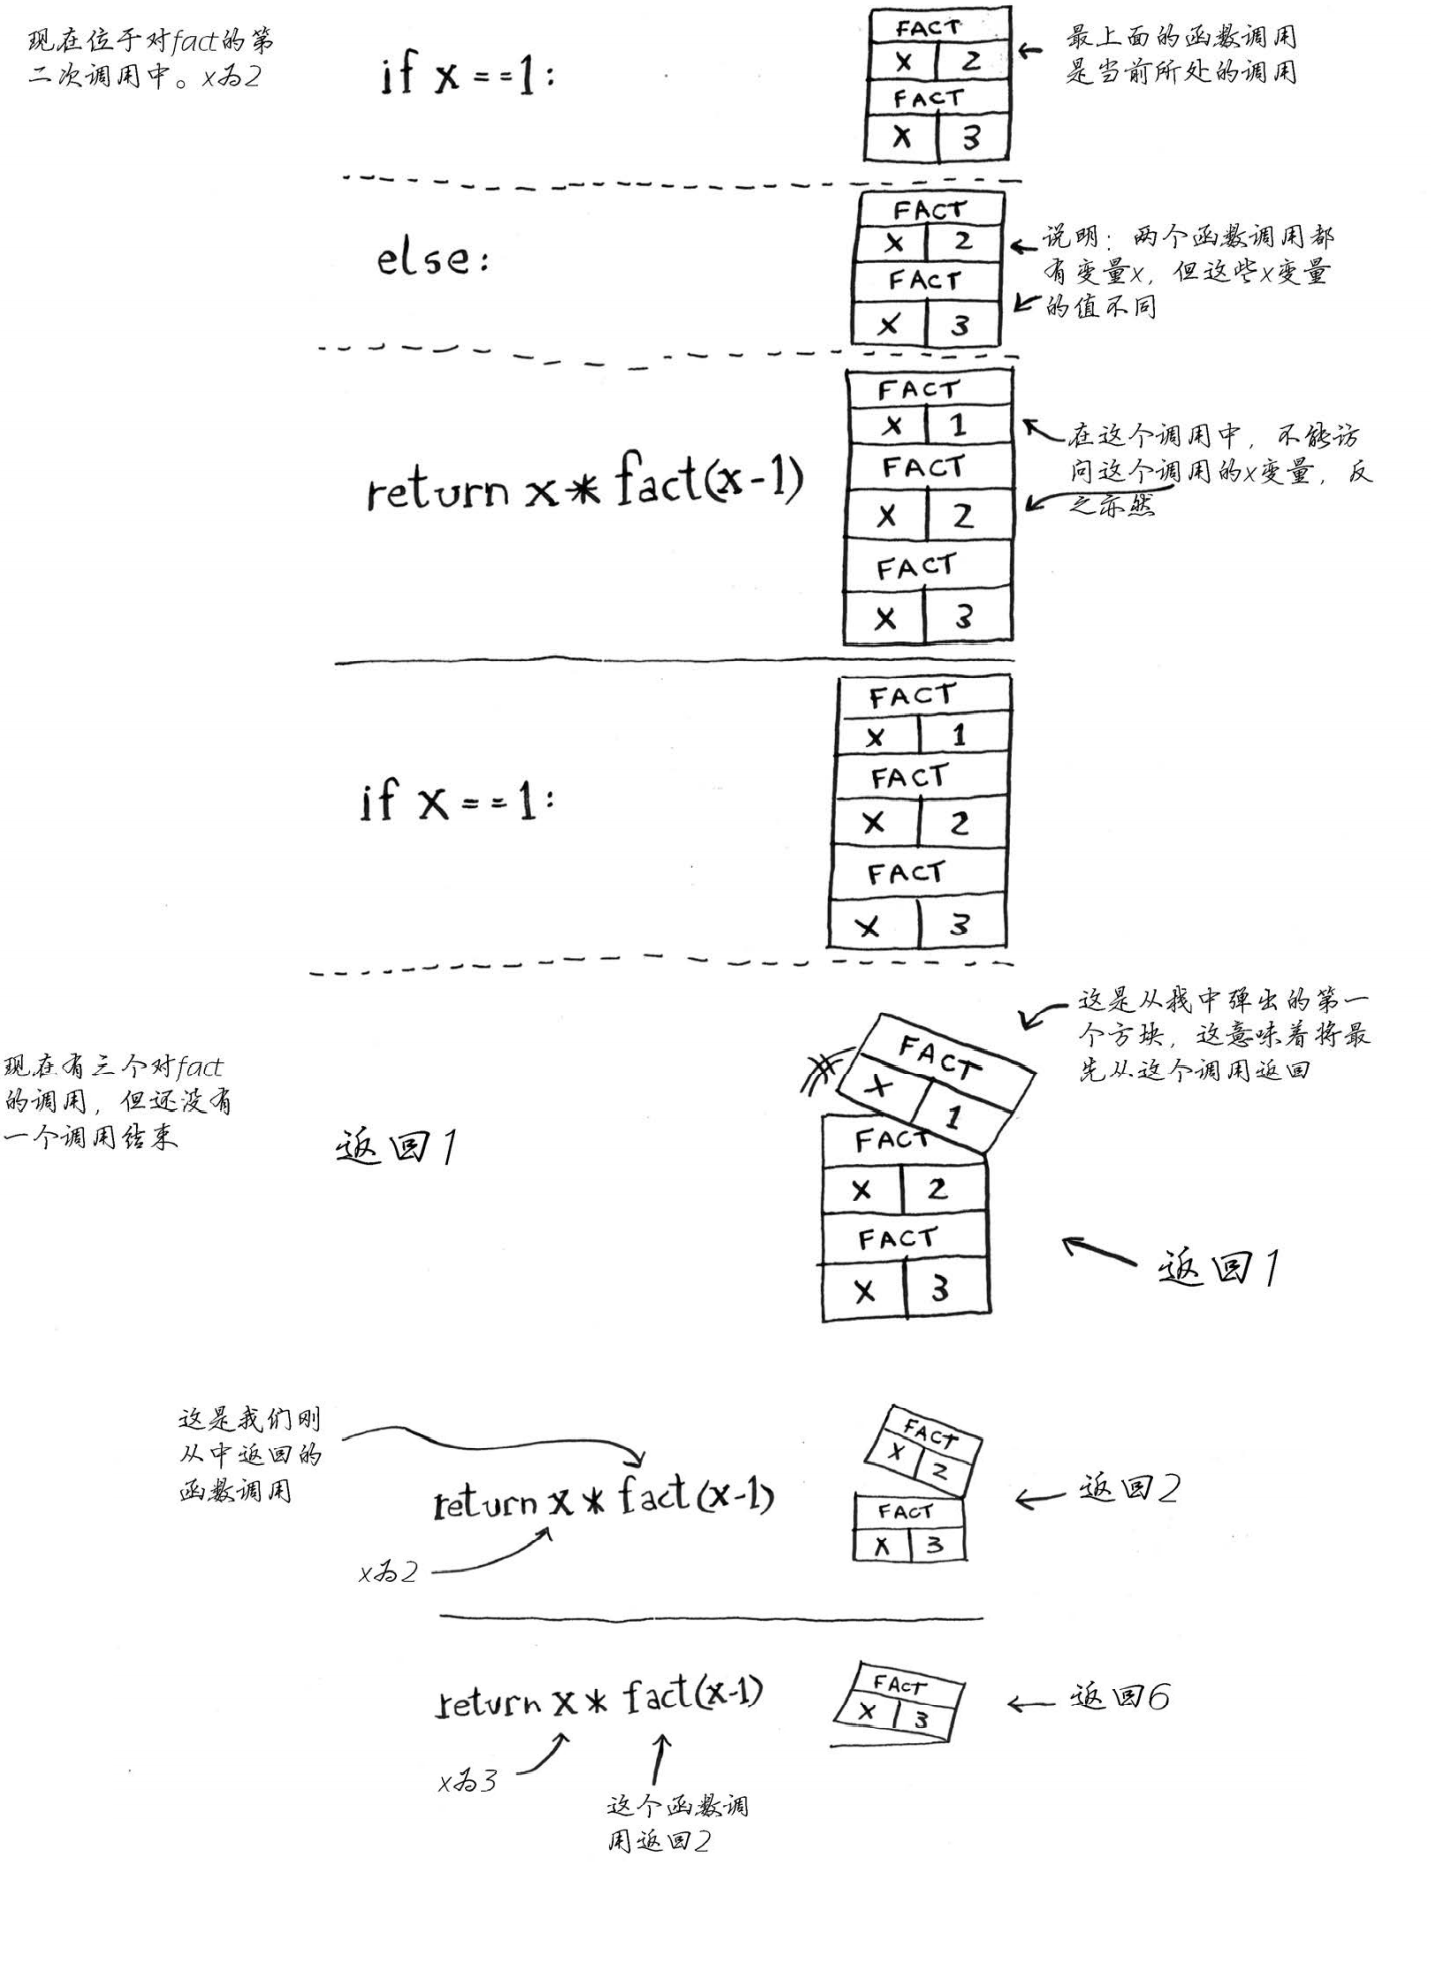 现在位于对fact的第
二次调用中。x为2
if x==1:
FACT
X 2
FACT
X 3
最上面的函数调用
是当前所处的调用
else:
FACT
X 2
FACT
X 3
说明：两个函数调用都
有变量x，但这些x变量
的值不同
return x*fact(x-1)
FACT
X 1
FACT
X 2
FACT
X 3
在这个调用中，不能访
问这个调用的x变量，反
之亦然
if x==1:
FACT
X 1
FACT
X 2
FACT
X 3
现在有三个对fact
的调用，但还没有
一个调用结束
返回1
FACT
X 1
FACT
X 2
FACT
X 3
这是从栈中弹出的第一
个方块，这意味着将最
先从这个调用返回
返回1
这是我们刚
从中返回的
函数调用
return x*fact(x-1)
x为2
FACT
X 2
FACT
X 3
返回2
return x*fact(x-1)
x为3
这个函数调
用返回2
FACT
X 3
返回6